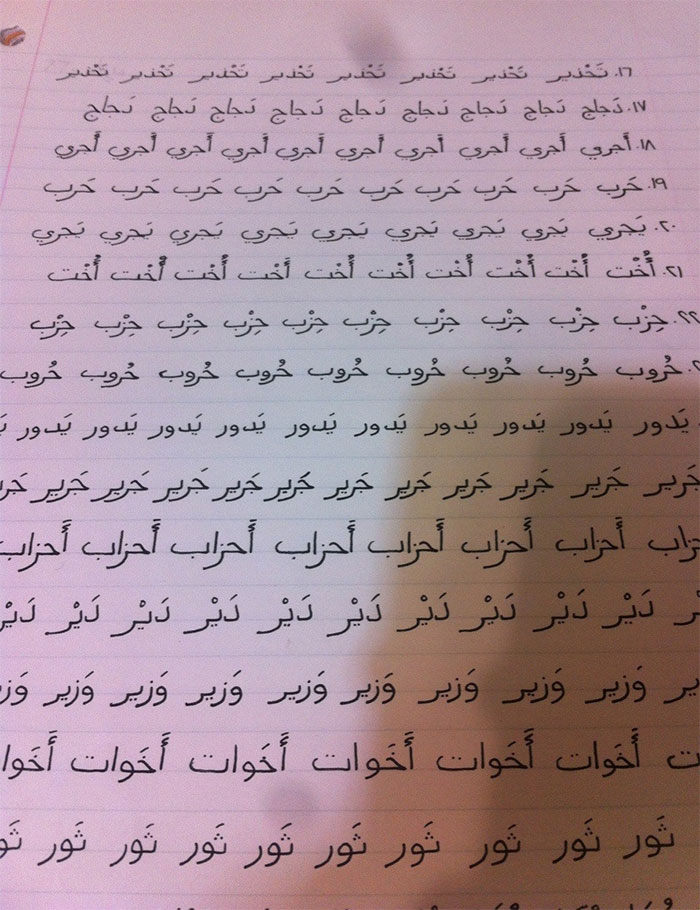 ١٦. تَحْذير تَحْذير تَحْذير تَحْذير تَحْذير تَحْذير تَحْذير تَحْذير
١٧. دَجاج دَجاج دَجاج دَجاج دَجاج دَجاج دَجاج دَجاج دَجاج
١٨. أَجري أَجري أَجري أَجري أَجري أَجري أَجري أَجري أَجري أَجري
١٩. حَرب حَرب حَرب حَرب حَرب حَرب حَرب حَرب حَرب حَرب
٢٠. يَجري يَجري يَجري يَجري يَجري يَجري يَجري يَجري يَجري
٢١. أُخْت أُخْت أُخْت أُخْت أُخْت أُخْت أُخْت أُخْت أُخْت أُخْت
٢٢. حِزْب حِزْب حِزْب حِزْب حِزْب حِزْب حِزْب حِزْب حِزْب حِزْب
خُروب خُروب خُروب خُروب خُروب خُروب خُروب خُروب خُروب
يَدور يَدور يَدور يَدور يَدور يَدور يَدور يَدور يَدور يَدور
جَرير جَرير جَرير جَرير جَرير جَرير جَرير جَرير جَرير جَرير جَرير
أَحزاب أَحزاب أَحزاب أَحزاب أَحزاب أَحزاب أَحزاب
دَيْر دَيْر دَيْر دَيْر دَيْر دَيْر دَيْر دَيْر دَيْر
وَزير وَزير وَزير وَزير وَزير وَزير وَزير وَزير
أَخَوات أَخَوات أَخَوات أَخَوات أَخَوات
ثَور ثَور ثَور ثَور ثَور ثَور ثَور ثَور ثَور